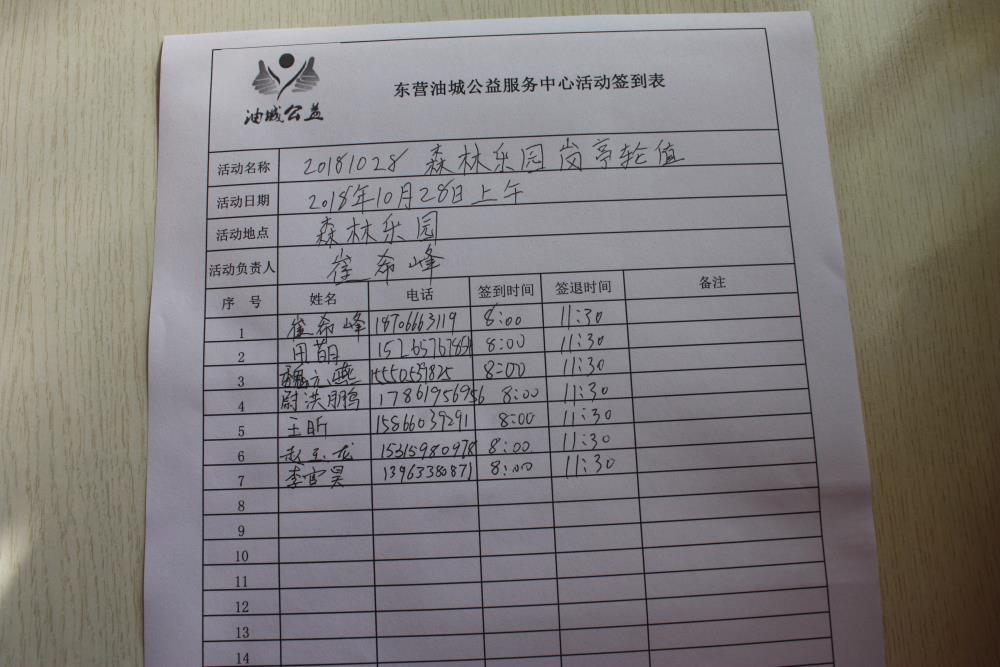 油城公益
东营油城公益服务中心活动签到表
活动名称 20181028 森林乐园岗亭轮值
活动日期 2018年10月28日上午
活动地点 森林乐园
活动负责人 崔希峰
序号 姓名 电话 签到时间 签退时间 备注
1 崔希峰 18706663119 8:00 11:30
2 田萌 8:00 11:30
3 燕 8:00 11:30
4 尉洪鹏 17861956956 8:00 11:30
5 王昕 15866039291 8:00 11:30
6 赵玉龙 15315980978 8:00 11:30
7 李雪昊 13963380871 8:00 11:30
8
9
10
11
12
13
14